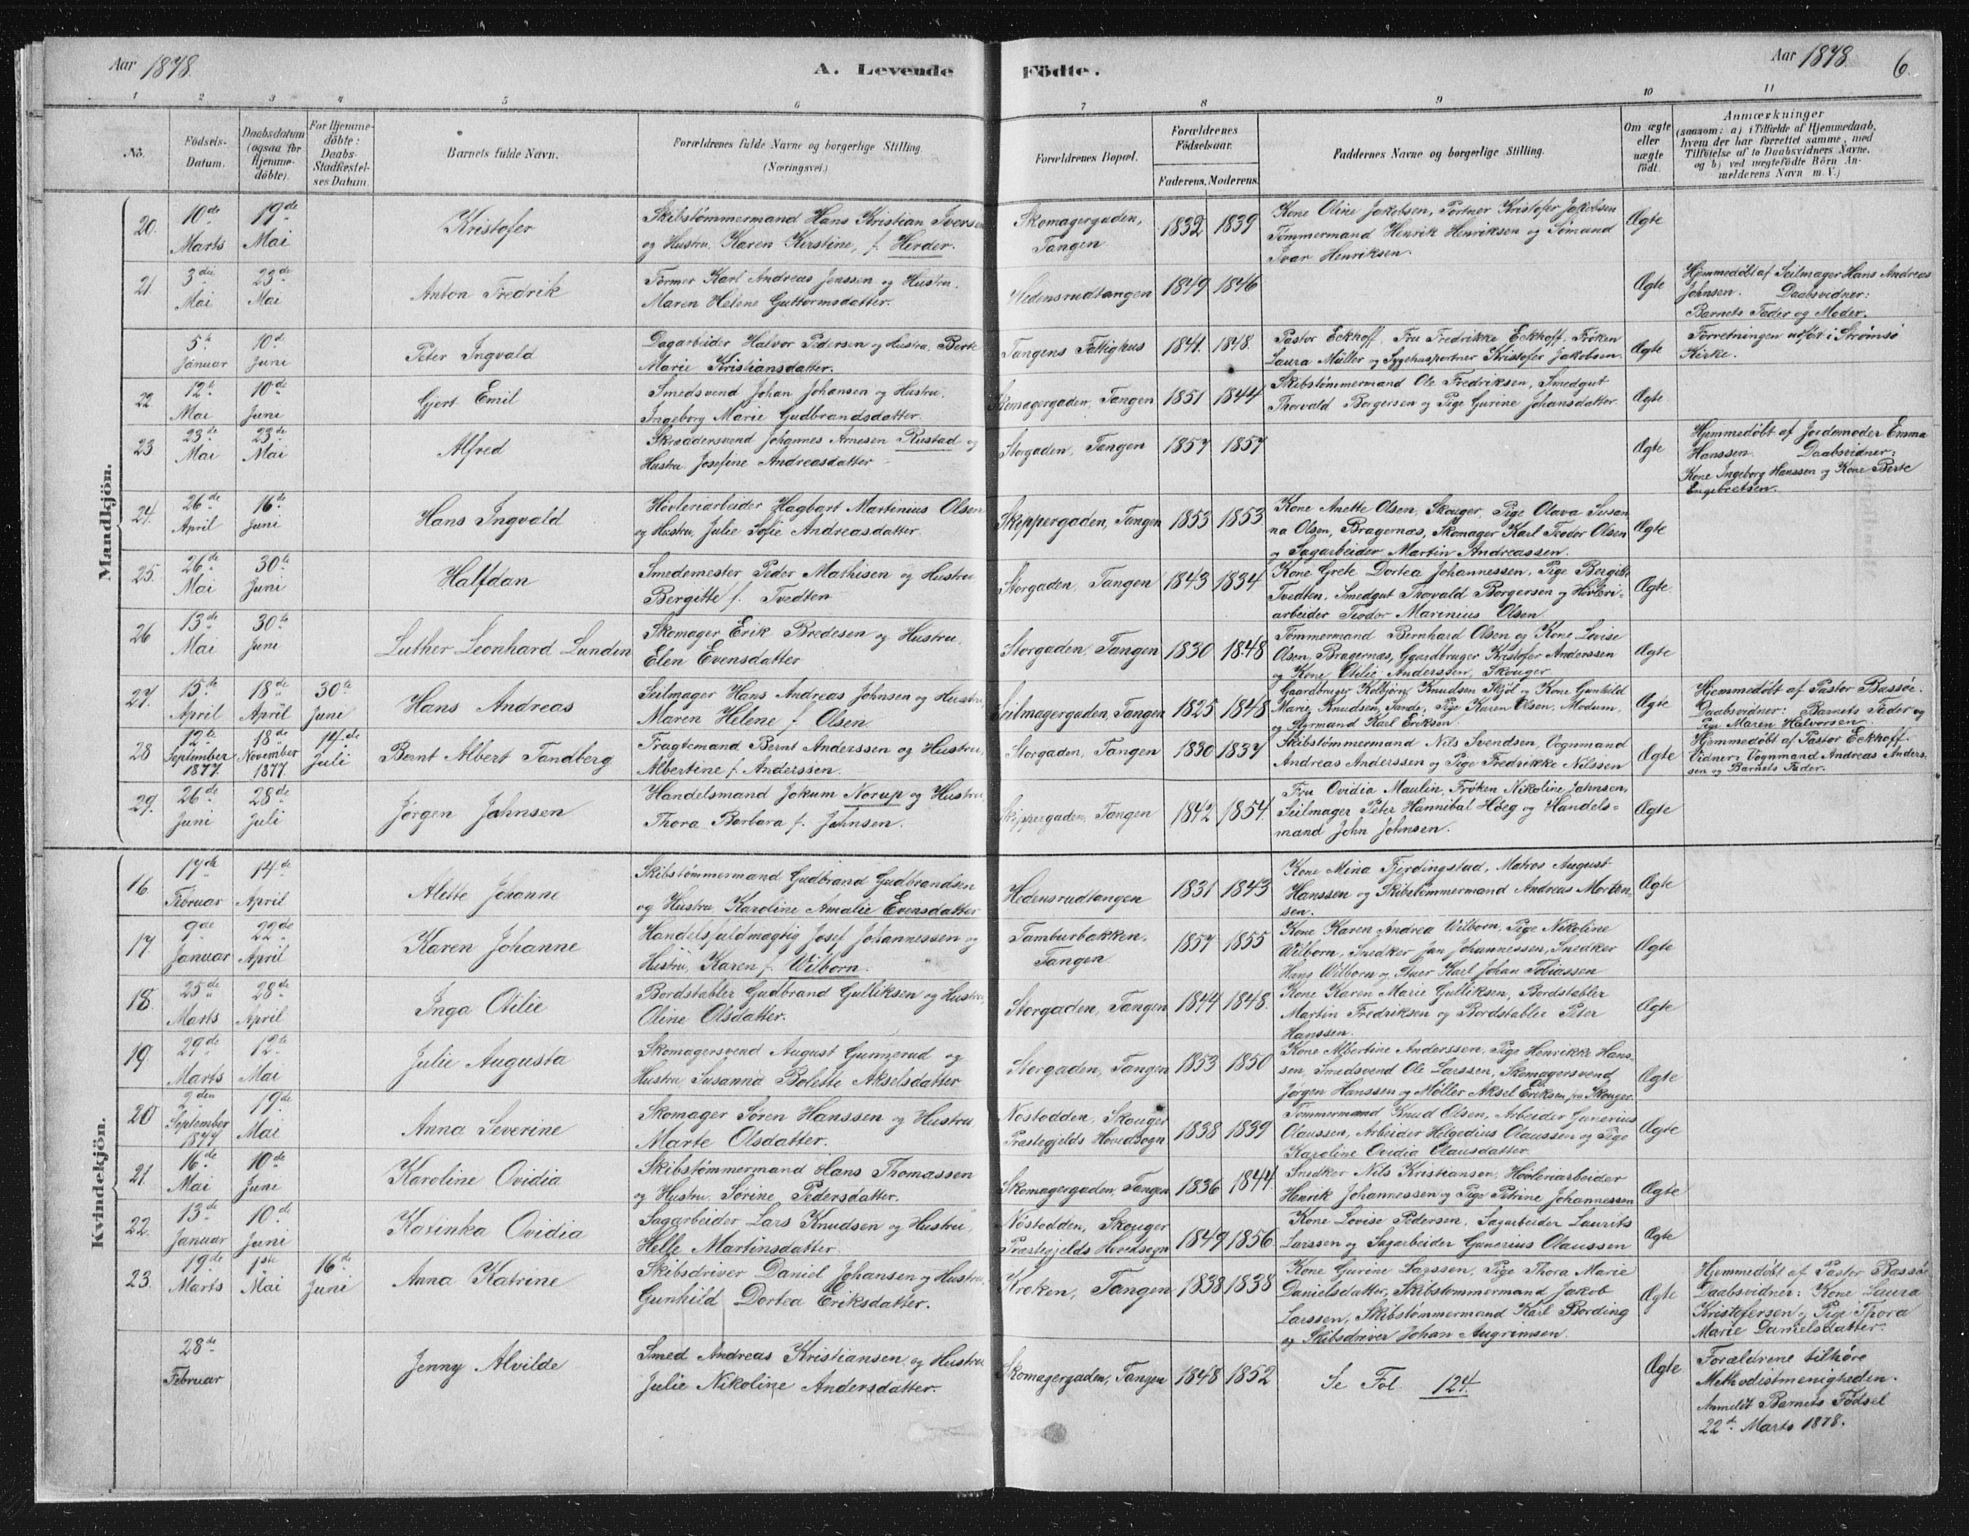 Aar 1878.
A. Levende Födte.
Aar 1878.
6.
1 2 3 4 5 6 7 8 9 10 11
No.
Födsels-
Datum.
Daabsdatum
(ogsaa for
Hjemme-
döbte).
For Hjemme-
döbte:
Daabs-
Stadfæstel-
ses Datum.
Barnets fulde Navn.
Forældrenes fulde Navne og borgerlige Stilling.
(Næringsvei.)
Forældrenes Bopæl.
Forældrenes
Födselsaar.
Faderens. Moderens.
Faddernes Navne og borgerlige Stilling.
Om ægte
eller
uægte
födt.
Anmærkninger
(saasom: a) i Tilfælde af Hjemmedaab,
hvem der har forrettet samme, med
Tilföielse af to Daabsvidners Navne,
og b) ved uægtefödte Börn An-
melderens Navn m. V.)
Mandkjön.
20. 10de Marts 19de Mai
Kristofer
Skibstømmermand Hans Kristian Iversen
og Hustru Karen Kirstine, f. Herder.
Skomagergaden,
Tangen
1832 1839
Kone Oline Jakobsen, Portner Kristofer Jakobsen
Tømmermand Henrik Henriksen og Sømand
Ivar Henriksen.
Ægte
21. 3die Mai 23de Mai
Anton Fredrik
Former Karl Andreas Jenssen og Hustru
Maren Helene Guttormsdatter.
Hedensrudtangen
1849 1846
Ægte
Hjemmedøbt af Seilmager Hans Andreas
Johnsen. Daabsvidner:
Barnets Fader og Moder.
5te Januar 10de Juni
Peter Ingvald
Dagarbeider Halvor Pedersen og Hustru Berte
Marie Kristiansdatter.
Tangens Fattighus
1841. 1848.
Pastor Eckhoff, Fru Fredrikke Eckhoff, Frøken
Laura Müller og Sygehusportner Kristofer Jakobsen.
Ægte
Forretningen udført i Strømsø
Kirke.
22 12te Mai 10de Juni
Gjert Emil
Smedsvend Johan Johansen og Hustru
Ingeborg Marie Gudbrandsdatter.
Skomagergaden, Tangen
1851 1844
Skibstømmermand Ole Fredriksen, Smedgut
Thorvald Borgersen og Pige Gurine Johansdatter
Ægte
23 23de Mai 23de Mai
Alfred
Skræddersvend Johannes Arnesen Rustad og
Hustru Josefine Andreasdatter
Storgaden, Tangen
1857 1857
Ægte
Hjemmedøbt af Jordemoder Emma
Hanssen. Daabsvidner:
Kone Ingeborg Hanssen og Kone Berte
Engebretsen.
24. 26de April 16de Juni
Hans Ingvald
Høvleriarbeider Hagbart Martenius Olsen
og Hustru Julie Sofie Andreasdatter.
Skippergaden, Tangen
1853 1853
Kone Anette Olsen, Skouger, Pige Olava Susan
na Olsen, Bragernæs, Skomager Karl Teodor Olsen
og Sagarbeider Martin Andreassen.
Ægte
25. 26de Mai 30te Juni
Halfdan
Smedemester Peder Mathisen og Hustru
Bergitte f. Tvedten
Storgaden, Tangen
1843 1834
Kone Grete Dortea Johannessen, Pige Bergitte
Tvedten, Smedgut Thorvald Borgersen og Høvleri-
arbeider Teodor Marinius Olsen
Ægte.
26 13de Mai 30te Juni
Luther Leonhard Lunden
Skomager Erik Bredesen og Hustru
Elen Evensdatter
Storgaden, Tangen
1830 1848
Tømmermand Bernhard Olsen og Kone Lovise
Olsen, Bragernæs, Gaardbruger Kristofer Anderssen
og Kone Otilie Anderssen, Skouger
Ægte
27. 15de April 18de April 30te Juni
Hans Andreas
Seilmager Hans Andreas Johnsen og Hustru
Maren Helene f. Olsen
Seilmagergaden, Tangen
1825 1848
Gaardbruger Kolbjørn Knudsen Skjøl og Kone Gunhild
Marie Knudsen, Sande, Pige Karen Olsen, Modum,
og Karl Eriksen.
Ægte
Hjemmedøbt af Pastor Bassøe.
Daabsvidner: Barnets Fader og
Pige Maren Halvorsen.
28 12te September 1877 18de November 1877. 14de Juli
Bernt Albert Tandberg
Fragtemand Bernt Anderssen og Hustru,
Albertine f. Anderssen.
Storgaden, Tangen
1830 1837
Skibstømmermand Nils Svendsen, Vognmand
Andreas Anderssen og Pige Fredrikke Nilssen
Ægte
Hjemmedøbt af Pastor Eckhoff.
Vidner: Vognmand Andreas Anders-
sen og Barnets Fader.
29. 26de Juni 28de Juli
Jørgen Jahnsen
Handelsmand Jokum Norup og Hustru,
Thora Barbara f. Jahnsen.
Skippergaden, Tangen
1842 1854
Fru Ovidia Maulin, Frøken Nikoline Jahnsen,
Seilmager Peter Hannibal Høeg og Handels-
mand John Johnsen.
Ægte
Kvindekjön.
16. 17de Februar 14de April
Alette Josanne
Skibstømmermand Gudbrand Gudbrandsen
og Hustru Karoline Amalie Evensdatter
Hedensrudtangen
1831 1843
Kone Mina Fjerdingstad, Matros August
Hanssen og Skibstømmermand Andreas Morten-
sen.
Ægte
17 9de Januar 22de April
Karen Johanne
Handelsfuldmægtig Josef Johannessen og
Hustru, Karen f. Wilborn.
Tamburbakken,
Tangen
1857 1855
Kone Karen Andrea Wilborn, Pige Nikoline
Wilborn, Snedker Jan Johannessen, Snedker
Hans Wilborn og Karl Johan Tobiassen
Ægte
18 25de Marts 28de April
Inga Otilie
Bordstabler Gudbrand Gulliksen og Hustru
Oline Olsdatter.
Storgaden, Tangen
1844 1848.
Kone Karen Marie Gulliksen, Bordstabler
Martin Fredriksen og Bordstabler Peter
Hanssen.
Ægte
19 29de Marts 12te Mai
Julie Augusta
Skomagersvend August Gunnerud og
Hustru, Susanna Bolette Akselsdatter
Storgaden, Tangen
1853 1850
Kone Albertine Anderssen, Pige Henrikke Hans-
sen, Smedsvend Ole Larssen, Skomagersvend
Jørgen Hanssen og Møller Aksel Eriksen, fra Skouger.
Ægte
20 2den September 1877 19de Mai
Anna Severine
Skomager Søren Hanssen og Hustru
Marte Olsdatter.
Nøstodden, Skouger
Præstegjelds Hovedsogn
1838 1839
Tømmermand Knud Olsen, Arbeider Gunerius
Olaussen, Arbeider Helgedius Olaussen og Pige
Karoline Ovidia Olausdatter.
Ægte
21. 16de Mai 10de Juni
Karoline Ovidia
Skibstømmermand Hans Thomassen
og Hustru, Sørine Pedersdatter.
Skomagergaden, Tangen
1836 1844.
Snedker Nils Kristiansen, Høvleriarbeider
Henrik Johannessen og Pige Petrine Johannessen
Ægte
22. 13de Januar 10de Juni
Katinka Ovidia
Sagarbeider Lars Knudsen og Hustru,
Helle Martinsdatter.
Nøstodden, Skouger
Præstegjelds Hovedsogn
1849 1856
Kone Lovise Pedersen, Sagarbeider Laurits
Larssen og Sagarbeider Gunerius Olaussen
Ægte
23. 19de Marts 1ste Mai 16de Juni
Anna Katrine
Skibsdriver Daniel Johansen og Hustru
Gunhild Dortea Eriksdatter.
Kroken, Tangen
1838 1838
Kone Gurine Larssen, Pige Thora Marie
Danielsdatter, Skibstømmermand Jakob
Larssen, Skibstømmermand Karl Bording
og Skibsdriver Johan Augrimsen.
Ægte
Hjemmedøbt af Pastor Bassøe
Daabsvidner: Kone Laura
Kristofersen og Pige Thora
Marie Danielsdatter.
28de Februar
Jenny Alvilde
Smed Andreas Kristiansen og Hustru
Julie Nikoline Andersdatter.
Skomagergaden, Tangen
1848 1852
Se Fol. 124.
Ægte
Forældrene tilhøre
Methodistmenigheden.
Anmeldt Barnets Fødsel
22de Marts 1878.